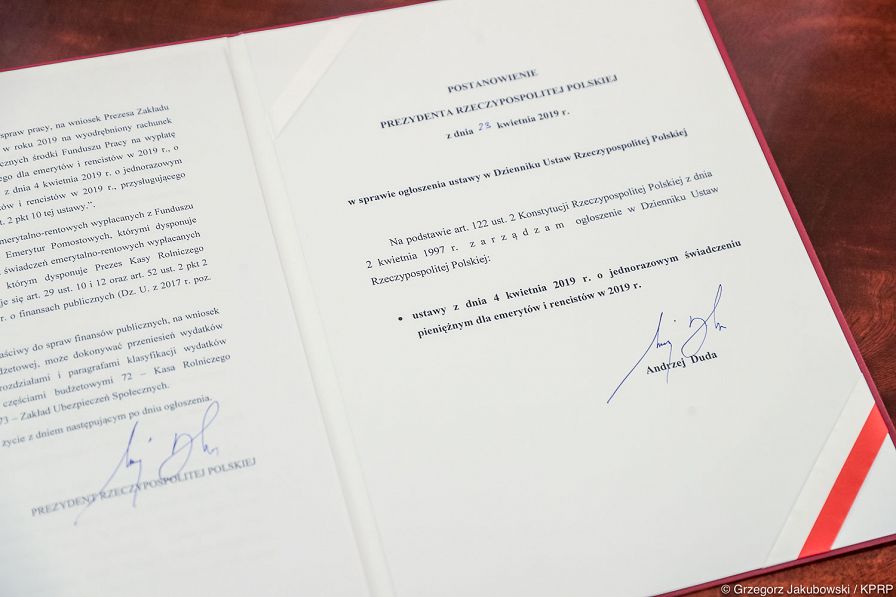 spraw pracy, na wniosek Prezesa Zakładu
w roku 2019 na wyodrębniony rachunek
cznych środki Funduszu Pracy na wypłatę
ego dla emerytów i rencistów w 2019 r., o
z dnia 4 kwietnia 2019 r. o jednorazowym
tów i rencistów w 2019 r., przysługującego
t. 2 pkt 10 tej ustawy.”.
emerytalno-rentowych wypłacanych z Funduszu
Emerytur Pomostowych, którymi dysponuje
świadczeń emerytalno-rentowych wypłacanych
którym dysponuje Prezes Kasy Rolniczego
je się art. 29 ust. 10 i 12 oraz art. 52 ust. 2 pkt 2
r. o finansach publicznych (Dz. U. z 2017 r. poz.
aściwy do spraw finansów publicznych, na wniosek
dżetowej, może dokonywać przeniesień wydatków
rozdziałami i paragrafami klasyfikacji wydatków
częściami budżetowymi 72 – Kasa Rolniczego
73 – Zakład Ubezpieczeń Społecznych.
życie z dniem następującym po dniu ogłoszenia.
PREZYDENT RZECZYPOSPOLITEJ POLSKIEJ
POSTANOWIENIE
PREZYDENTA RZECZYPOSPOLITEJ POLSKIEJ
z dnia 23 kwietnia 2019 r.
w sprawie ogłoszenia ustawy w Dzienniku Ustaw Rzeczypospolitej Polskiej
Na podstawie art. 122 ust. 2 Konstytucji Rzeczypospolitej Polskiej z dnia
2 kwietnia 1997 r. z a r z ą d z a m ogłoszenie w Dzienniku Ustaw
Rzeczypospolitej Polskiej:
• ustawy z dnia 4 kwietnia 2019 r. o jednorazowym świadczeniu
pieniężnym dla emerytów i rencistów w 2019 r.
Andrzej Duda
© Grzegorz Jakubowski / KPRP